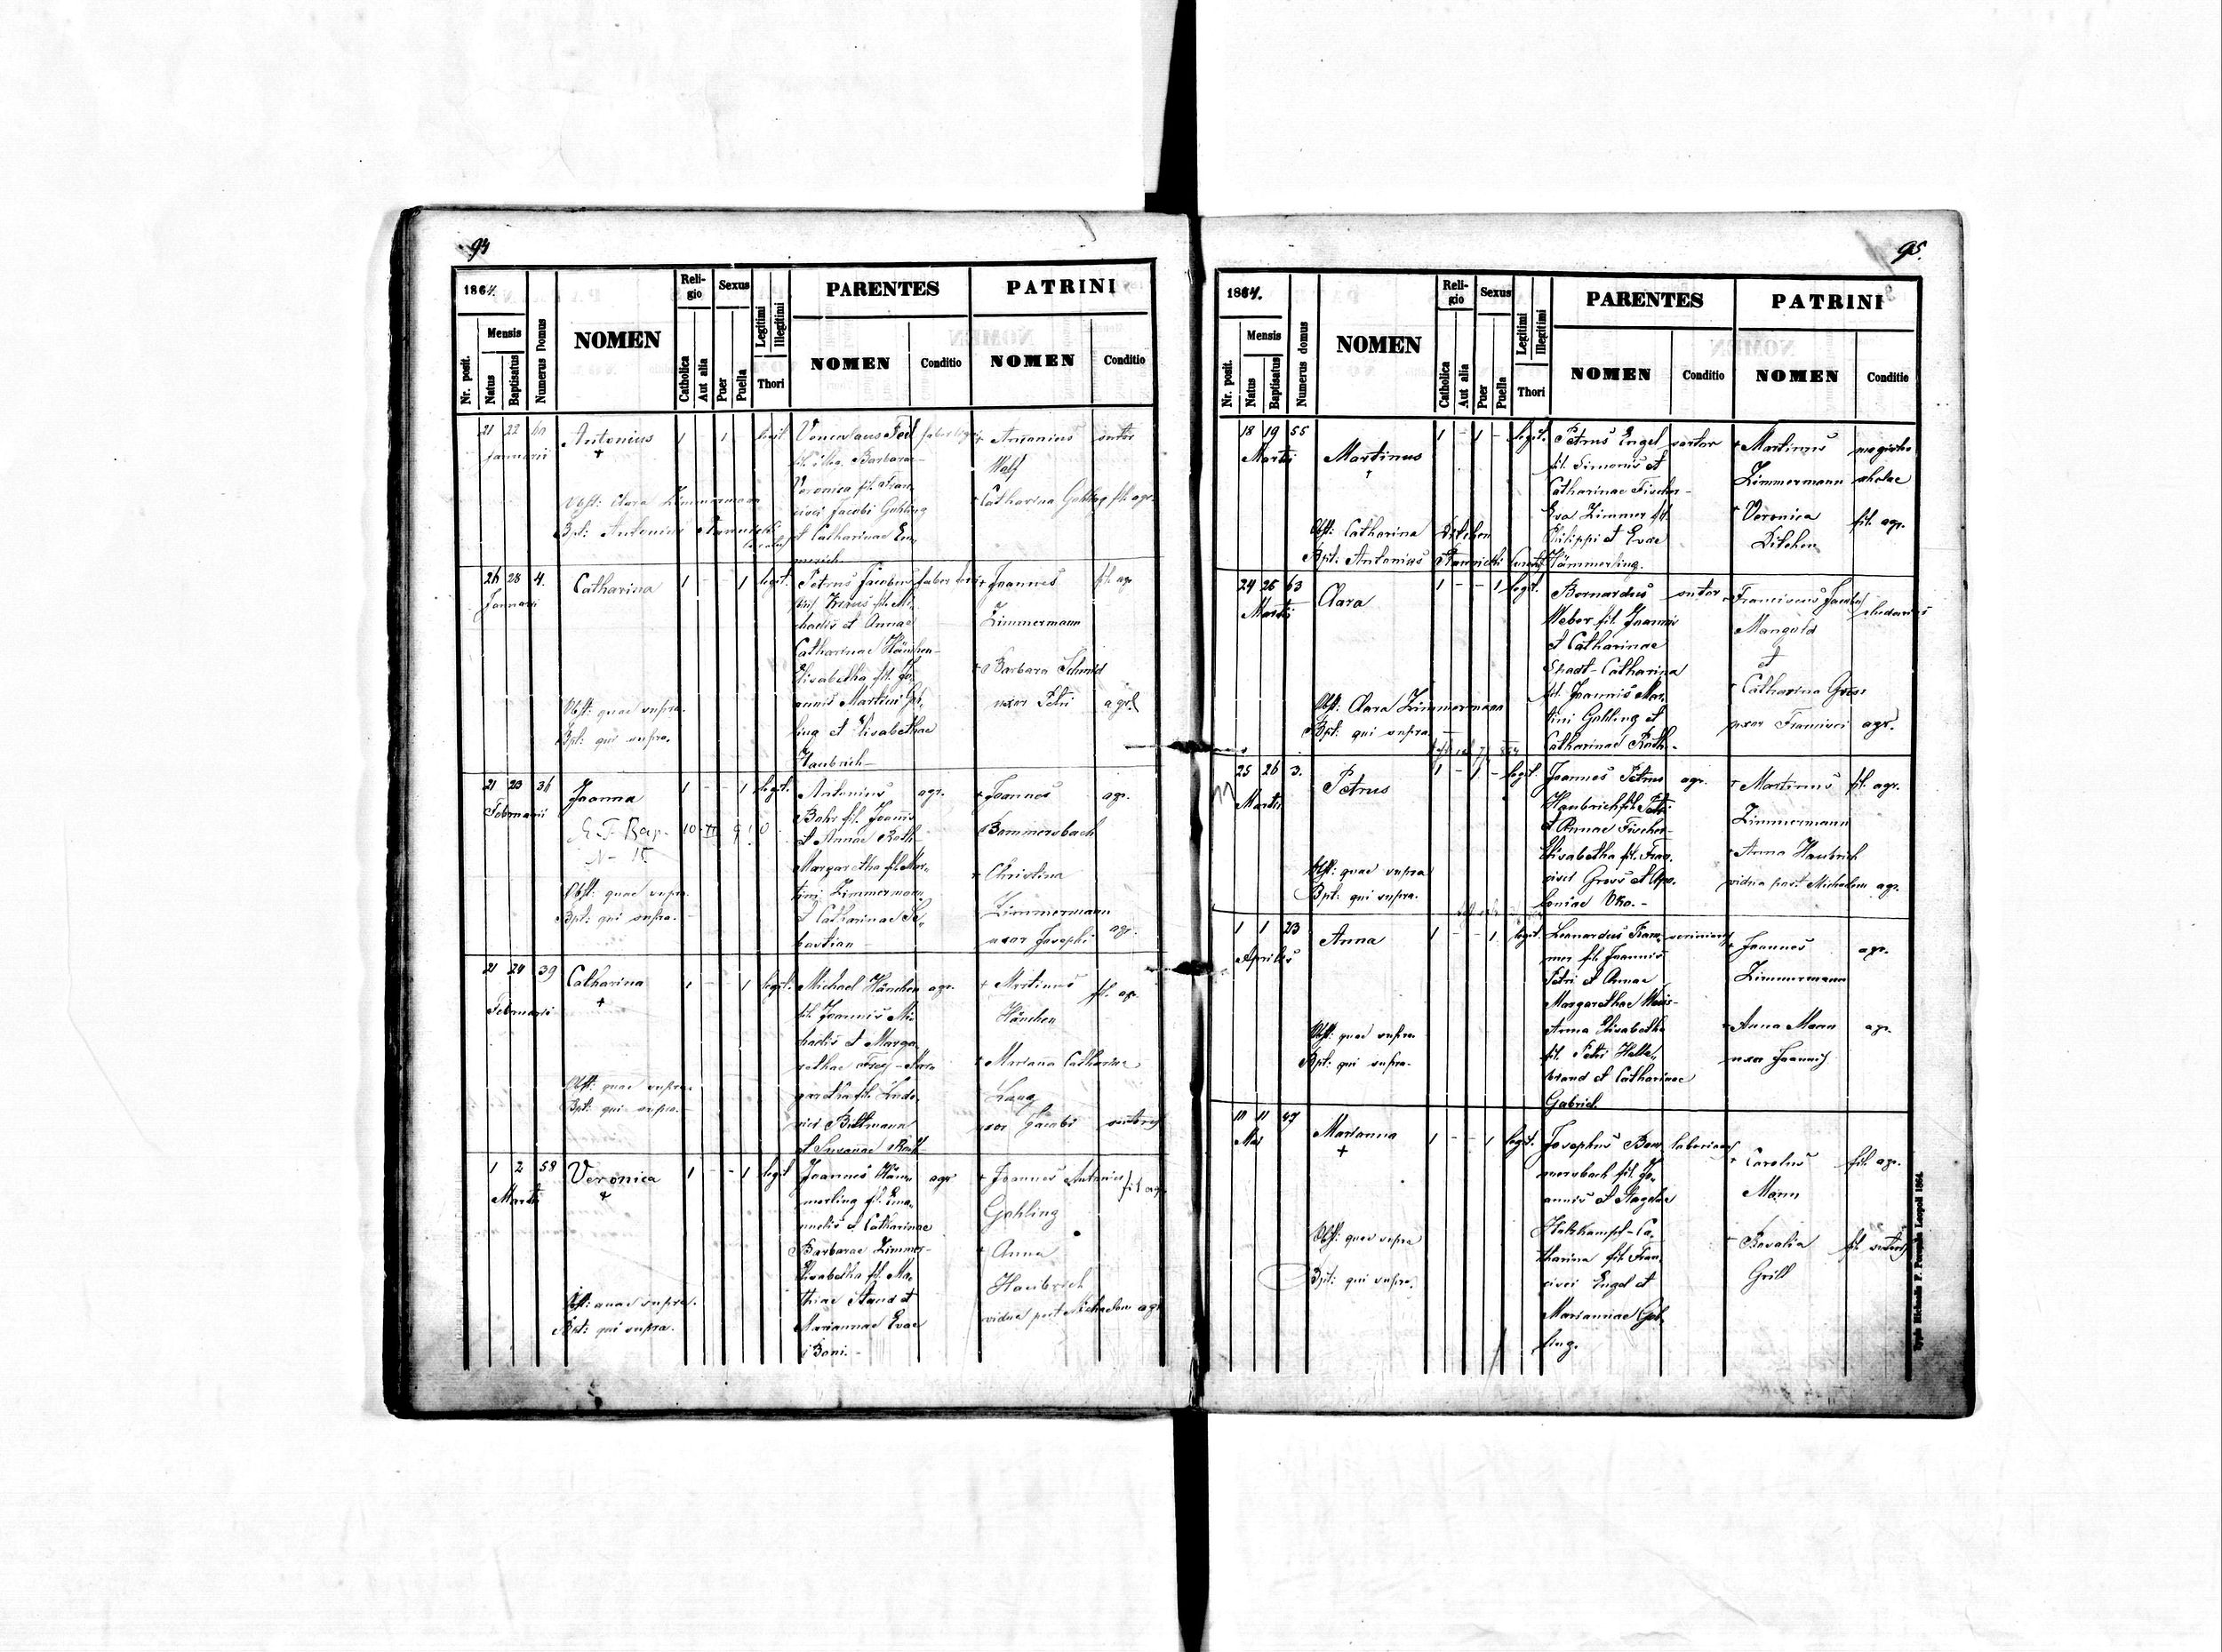 94
1864.
Nr. posit.
Mensis
Natus
Baptisatus
Numerus Domus
NOMEN
Reli-
gio
Catholica
Aut alia
Sexus
Puer
Puella
Legitimi
Illegitimi
Thori
PARENTES
NOMEN
Conditio
PATRINI
NOMEN
Conditio
21 22
Januarii
Antonius
1 - 1 legit.
Obst: Clara Zimmermann
Bpt: Antonius
Barbara
Veronica fil. Fran-
cisci Jacobi Gohling
et Catharinae Em-
merich
Antonius sutor
Wolf
Catharina Gohling fil. agr.
26 28 4.
Januarii
Catharina
1 - - 1 legit.
Obst: quae supra.
Bpt: qui supra.
Petrus Jacobus faber
fil. Mi-
chaelis et Annae
Catharinae Hänchen -
Elisabetha fil. Jo-
annis Martini Goh-
ling et Elisabethae
Haubrich -
Joannes fil. agr.
Zimmermann
Barbara Schmid
uxor Petri agr.
21 23 36
Februarii
Joanna
1 - - 1 legit.
Obst: quae supra.
Bpt: qui supra.
Antonius agr.
Bahr fil. Joannis
et Annae Roth -
Margaretha fil. Mar-
tini Zimmermann
et Catharinae Se-
bastian
Joannes agr.
Bommersbach
Christina
Zimmermann
uxor Josephi agr.
21 24 39
Februarii
Catharina
1 - - 1 legit.
Obst: quae supra.
Bpt: qui supra.
Michael Hänchen agr.
fil. Joannis Mi-
chaelis et Marga-
rethae Frey - Mar-
garetha fil. Ludo-
vici Bultmann
et Susannae Roth -
Martinus fil. agr.
Hänchen
Mariana Catharina
Lang
uxor Jacobi sutoris
1 2 58
Martii
Veronica
1 - - 1 legit.
Obst: quae supra.
Bpt: qui supra.
Joannes Häm- agr.
merling fil. Ema-
nuelis et Catharinae
Barbarae Zimmer -
Elisabetha fil. Ma-
thiae Staud et
Mariannae Evae
Boni. -
Joannes Antonius fil. agr.
Gohling
Anna
Haubrich
vidua post Michaelem agr.
95.
1864.
Nr. posit.
Mensis
Natus
Baptisatus
Numerus domus
NOMEN
Reli-
gio
Catholica
Aut alia
Sexus
Puer
Puella
Legitimi
Illegitimi
Thori
PARENTES
NOMEN
Conditio
PATRINI
NOMEN
Conditio
18 19 55
Martii
Martinus
1 - 1 - legit.
Obst: Catharina Ditchen
Bpt: Antonius
Petrus Engel sartor
fil. Simonis et
Catharinae Fischer -
Eva Zimmer fil.
Philippi et Evae
Hämmerling.
Martinus magister
Zimmermann scholae
Veronica fil. agr.
Ditchen
24 26 63
Martii
Clara
1 - - 1 legit.
Obst: Clara Zimmermann
Bpt: qui supra.
Bernardus sutor
Weber fil. Joannis
et Catharinae
Spaat - Catharina
fil. Joannis Mar-
tini Gohling et
Catharinae Roth -
Franciscus Jacobus
Mangold
et
Catharina Gross
uxor Francisci agr.
25 26 3.
Martii
Petrus
1 - 1 - legit.
Obst: quae supra
Bpt: qui supra.
Joannes Petrus agr.
Haubrich fil. Petri
et Annae Fischer -
Elisabetha fil. Fran-
cisci Gross et Apo-
loniae Oko. -
Martinus fil. agr.
Zimmermann
Anna Haubrich
vidua post Michaelem agr.
1 1 23
Aprilis
Anna
1 - - 1 legit.
Obst: quae supra.
Bpt: qui supra.
Leonardus Kram-
mer fil. Joannis
Petri et Annae
Margarethae Weis -
Anna Elisabetha
fil. Petri Helle-
brand et Catharinae
Gabriel.
Joannes agr.
Zimmermann
Anna Mann agr.
uxor Joannis
10 11 47
Mai
Marianna
1 - - 1 legit.
Obst: quae supra
Bpt: qui supra.
Josephus Bom-
mersbach fil. Jo-
annis et Magdae
Holzkampf - Ca-
tharina fil. Fran-
cisci Engel et
Mariannae Goh-
ling.
Carolus fil. agr.
Mann
Rosalia fil. sutoris
Grill
Typis Michaelis F. Poremba Leopoli 1864.